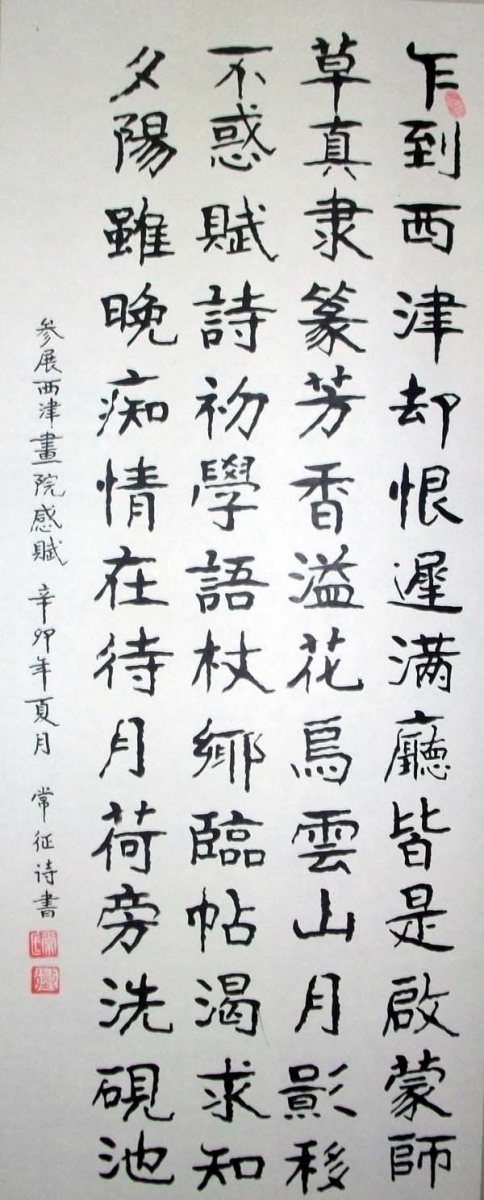 乍到西津却恨遲满廳皆是啟蒙師
草真隶篆芳香溢花鳥雲山月影移
不惑賦詩初學語杖鄉臨帖渴求知
夕陽雖晚痴情在待月荷旁洗硯池
参展西津畫院感賦 辛卯年夏月 常征诗書